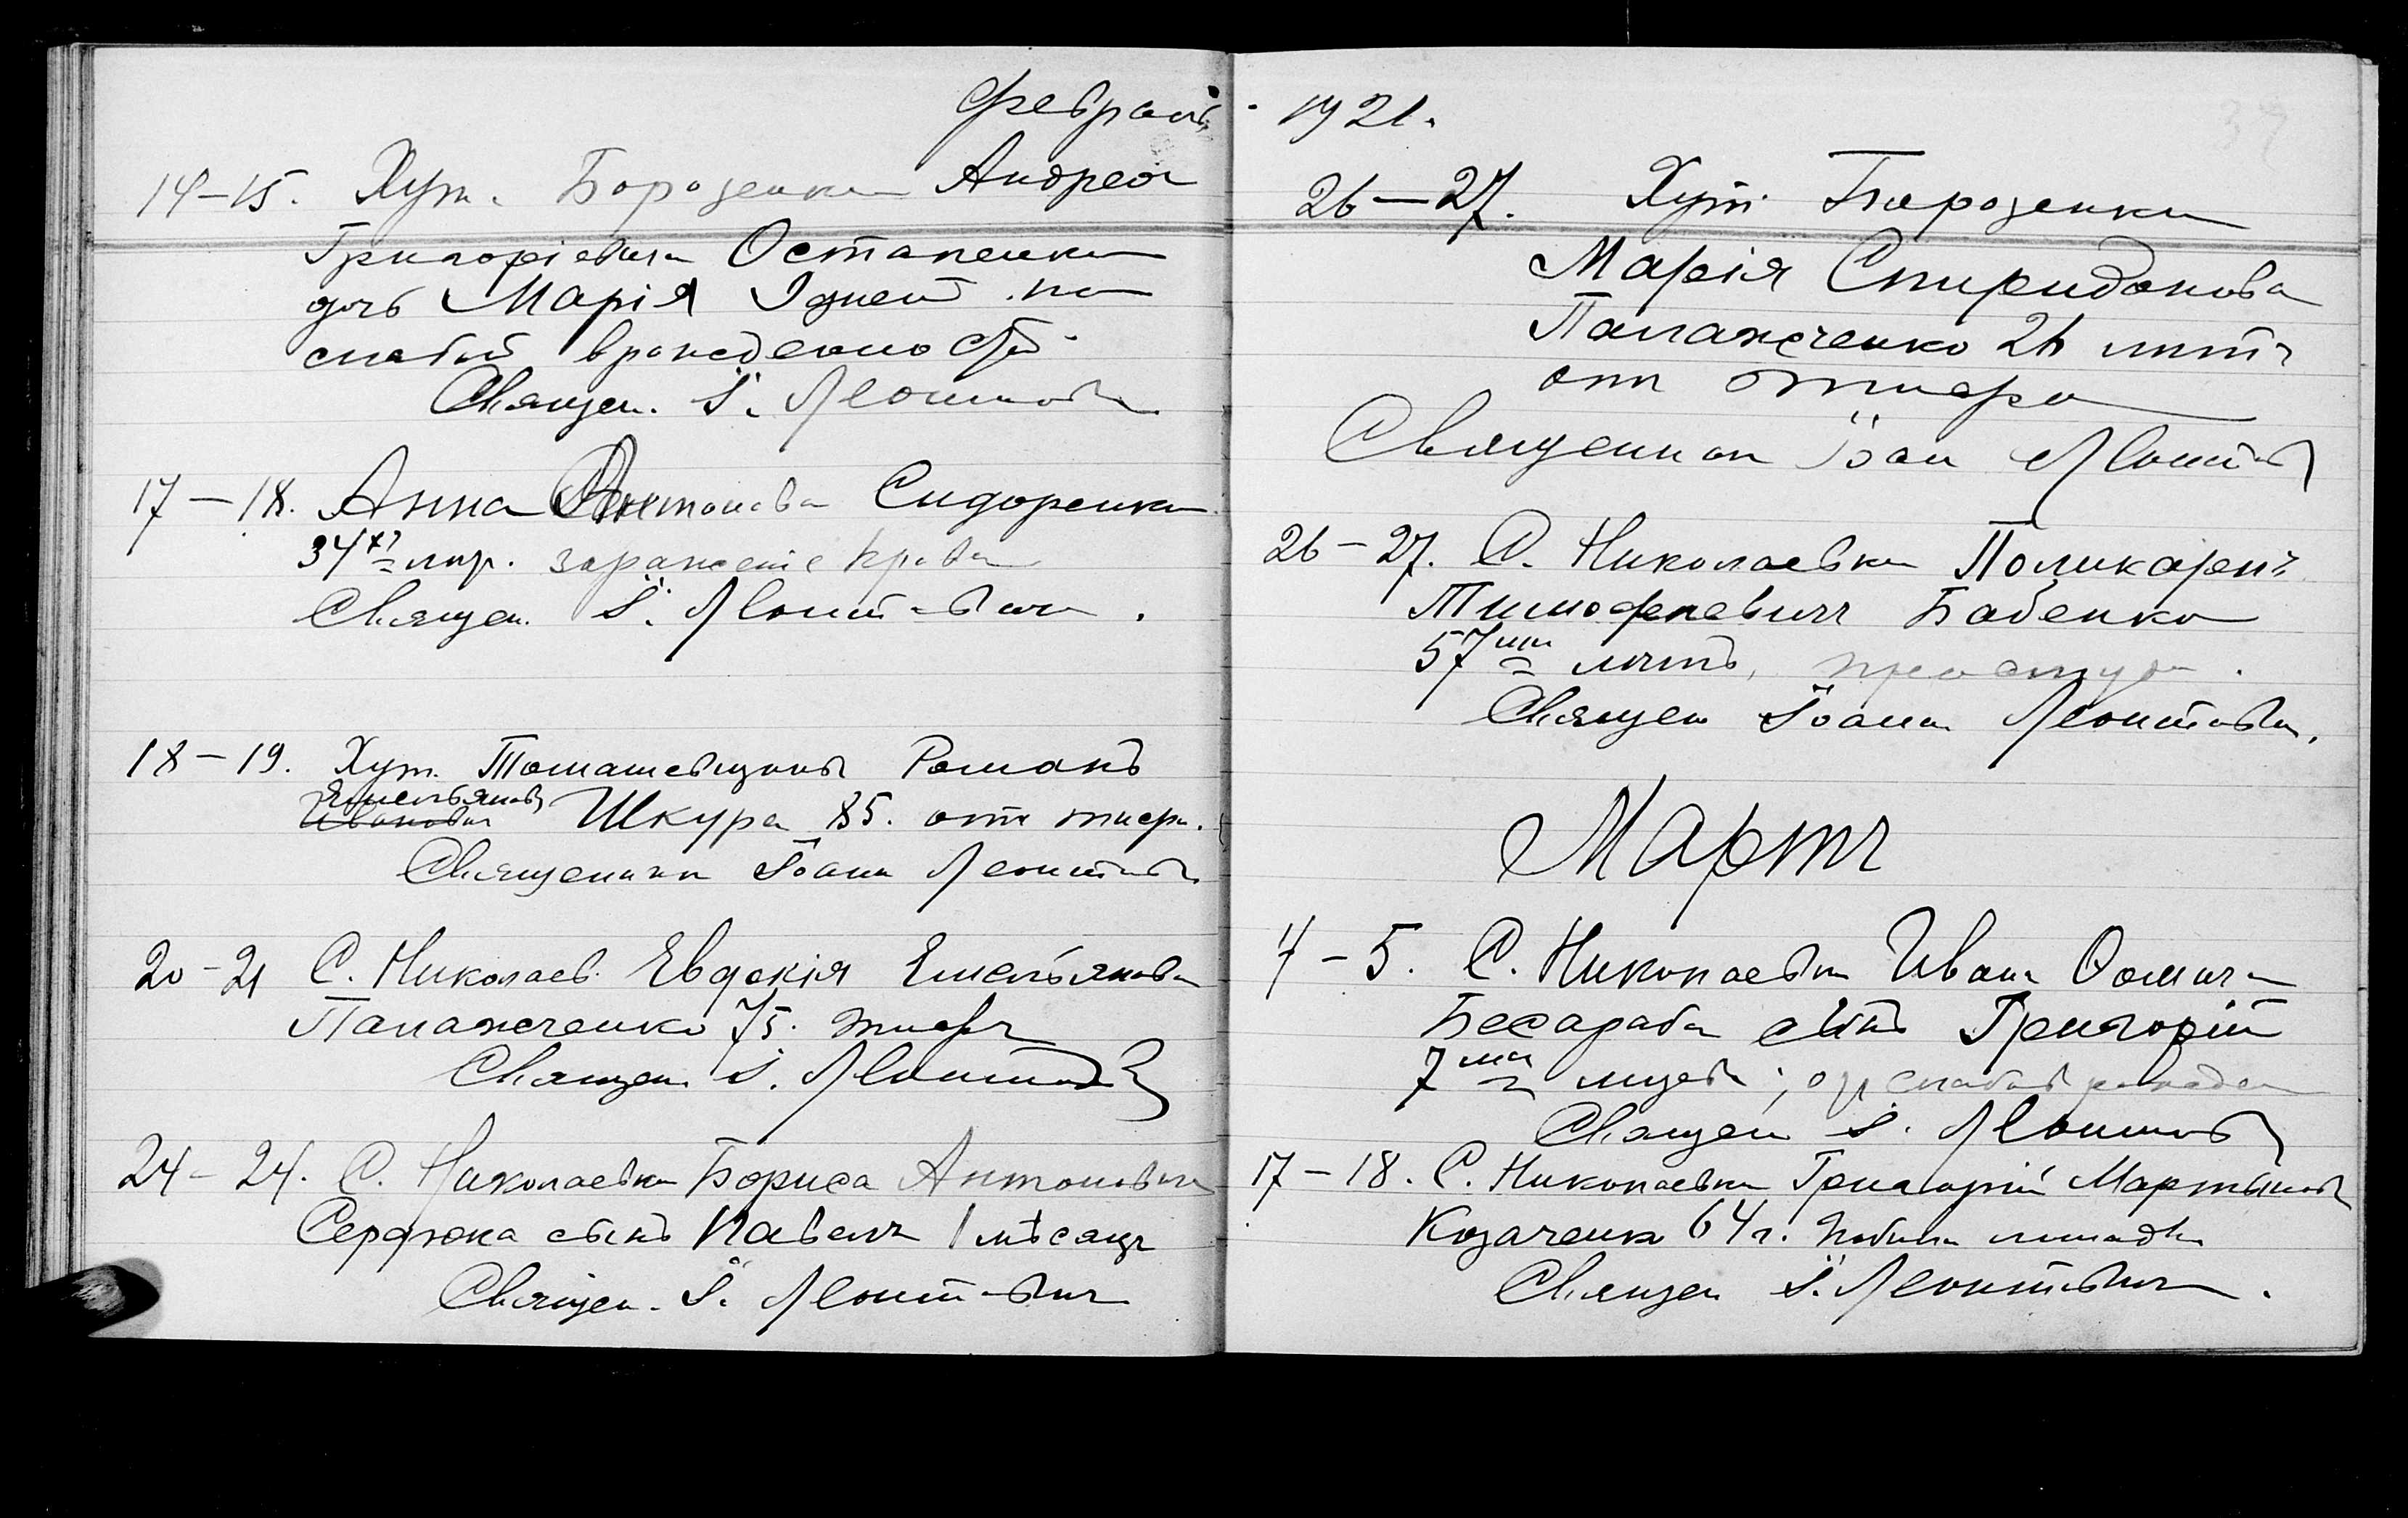 Февраль
14–15. Хут. Бороденки Андрея
Григоріевича Остапенки
дочь Марія 2 дней по
слабой врожденности
Священ. І. Леонтович
17–18. Анна Антонова Сидоренко
34х лѣт. зараженіе крови
Священ. І. Леонтович.
18–19. Хут. Томашевщины Романъ
Емельянов
Иванович Шкура 85. от тифа.
Священник Іоанн Леонтович
20–21 С. Николаев. Евдокія Емельянова
Папаженко 75. тифъ
Священ. І. Леонтович
24–24. С. Николаевки Бориса Антоновича
Сердюка сынъ Павелъ 1 мѣсяцъ
Священ. І. Леонтович
1921.
26–27. Хут. Бороденки
Марія Спиридонова
26 лѣтъ
от тифа
Священник Іоан Леонтович
26–27. С. Николаевки Поликарпъ
Тимофеевичъ Бабенко
57ми лѣтъ, простуда.
Священ Іоанн Леонтович.
Мартъ
4–5. С. Николаевки Ивана Фомича
Бесараба сынъ Григорій
7ми
Священ І. Леонтович
17–18. С. Николаевки Григорій Мартынов
Козаченко 64 г. лошадь
Священ І. Леонтович.